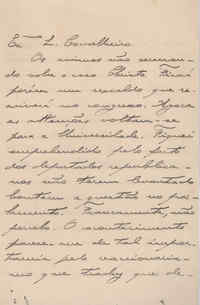 Exmo. L. Carvalheiro
Os animos vão serenan-
do sobre o caso Christo. Ficará
porém um rescaldo que re-
viverá no congresso. Agora
as attenções voltam-se
para a Universidade. Fiquei
surprehendido pelo facto
dos deputados republica-
nos não terem levantado
hontem a questão no par-
lamento. Francamente, não
percebo. O acontecimento
parece-me de tal impor-
tancia pelo reaccionaris-
mo que traduz que de-